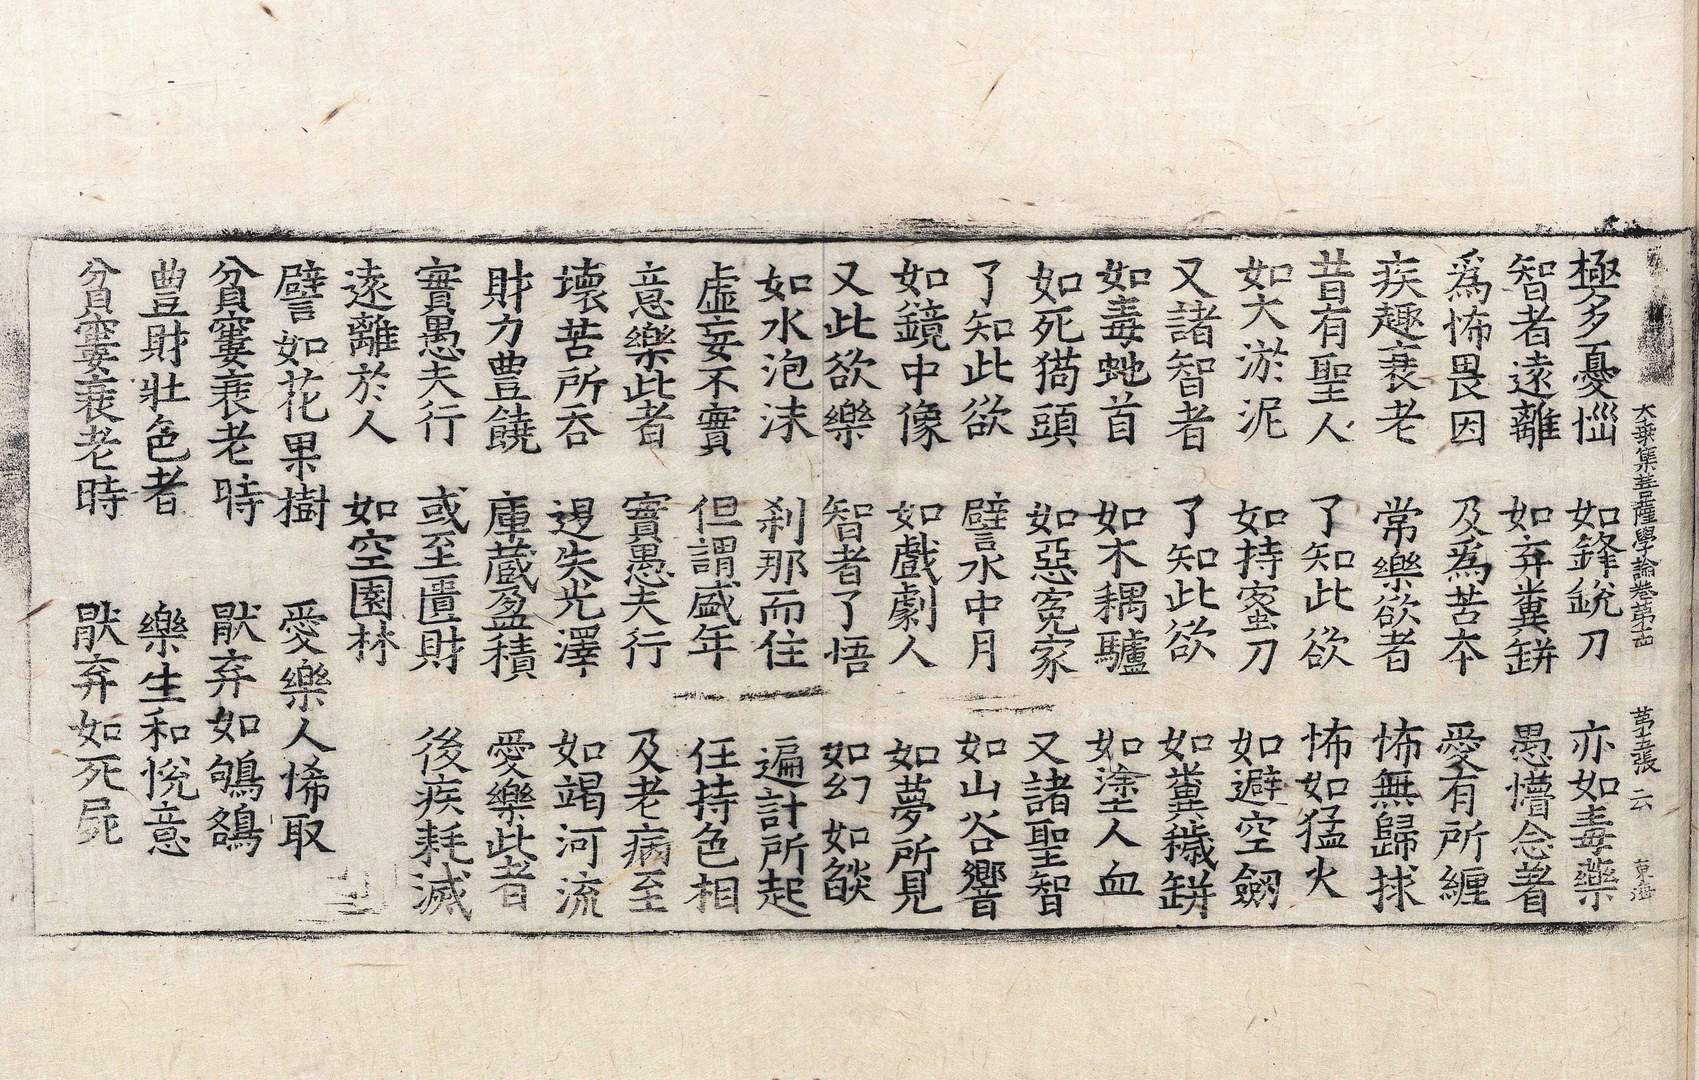 大乗集菩薩學論卷第十四 第十五張 云 東海
極多憂惱 如鋒銳刀 亦如毒藥
智者遠離 如弃糞缾 愚懵念著
爲怖畏因 及為苦本 愛有所纏
疾趣衰老 常樂欲者 怖無歸救
昔有聖人 了知此欲 怖如猛火
如大淤泥 如持蜜刀 如避空劒
又諸智者 了知此欲 如糞穢缾
如毒虵首 如木耦驢 如塗人血
如死㺃頭 如惡寃家 又諸聖智
了知此欲 譬水中月 如山谷響
如鏡中像 如戲劇人 如夢所見
又此欲樂 智者了悟 如幻如燄
如水泡沫 刹那而住 遍計所起
虛妄不實 但謂盛年 任持色相
意樂此者 實愚夫行 及老病至
壞苦所吞 退失光澤 如竭河流
財力豊饒 庫藏盈積 愛樂此者
實愚夫行 或至匱財 後疾耗減
遠離於人 如空園林
譬如花果樹 愛樂人悕取
貧窶衰老時 猒弃如
豊財壯色者 樂生和悅意
貧窶衰老時 猒弃如死屍